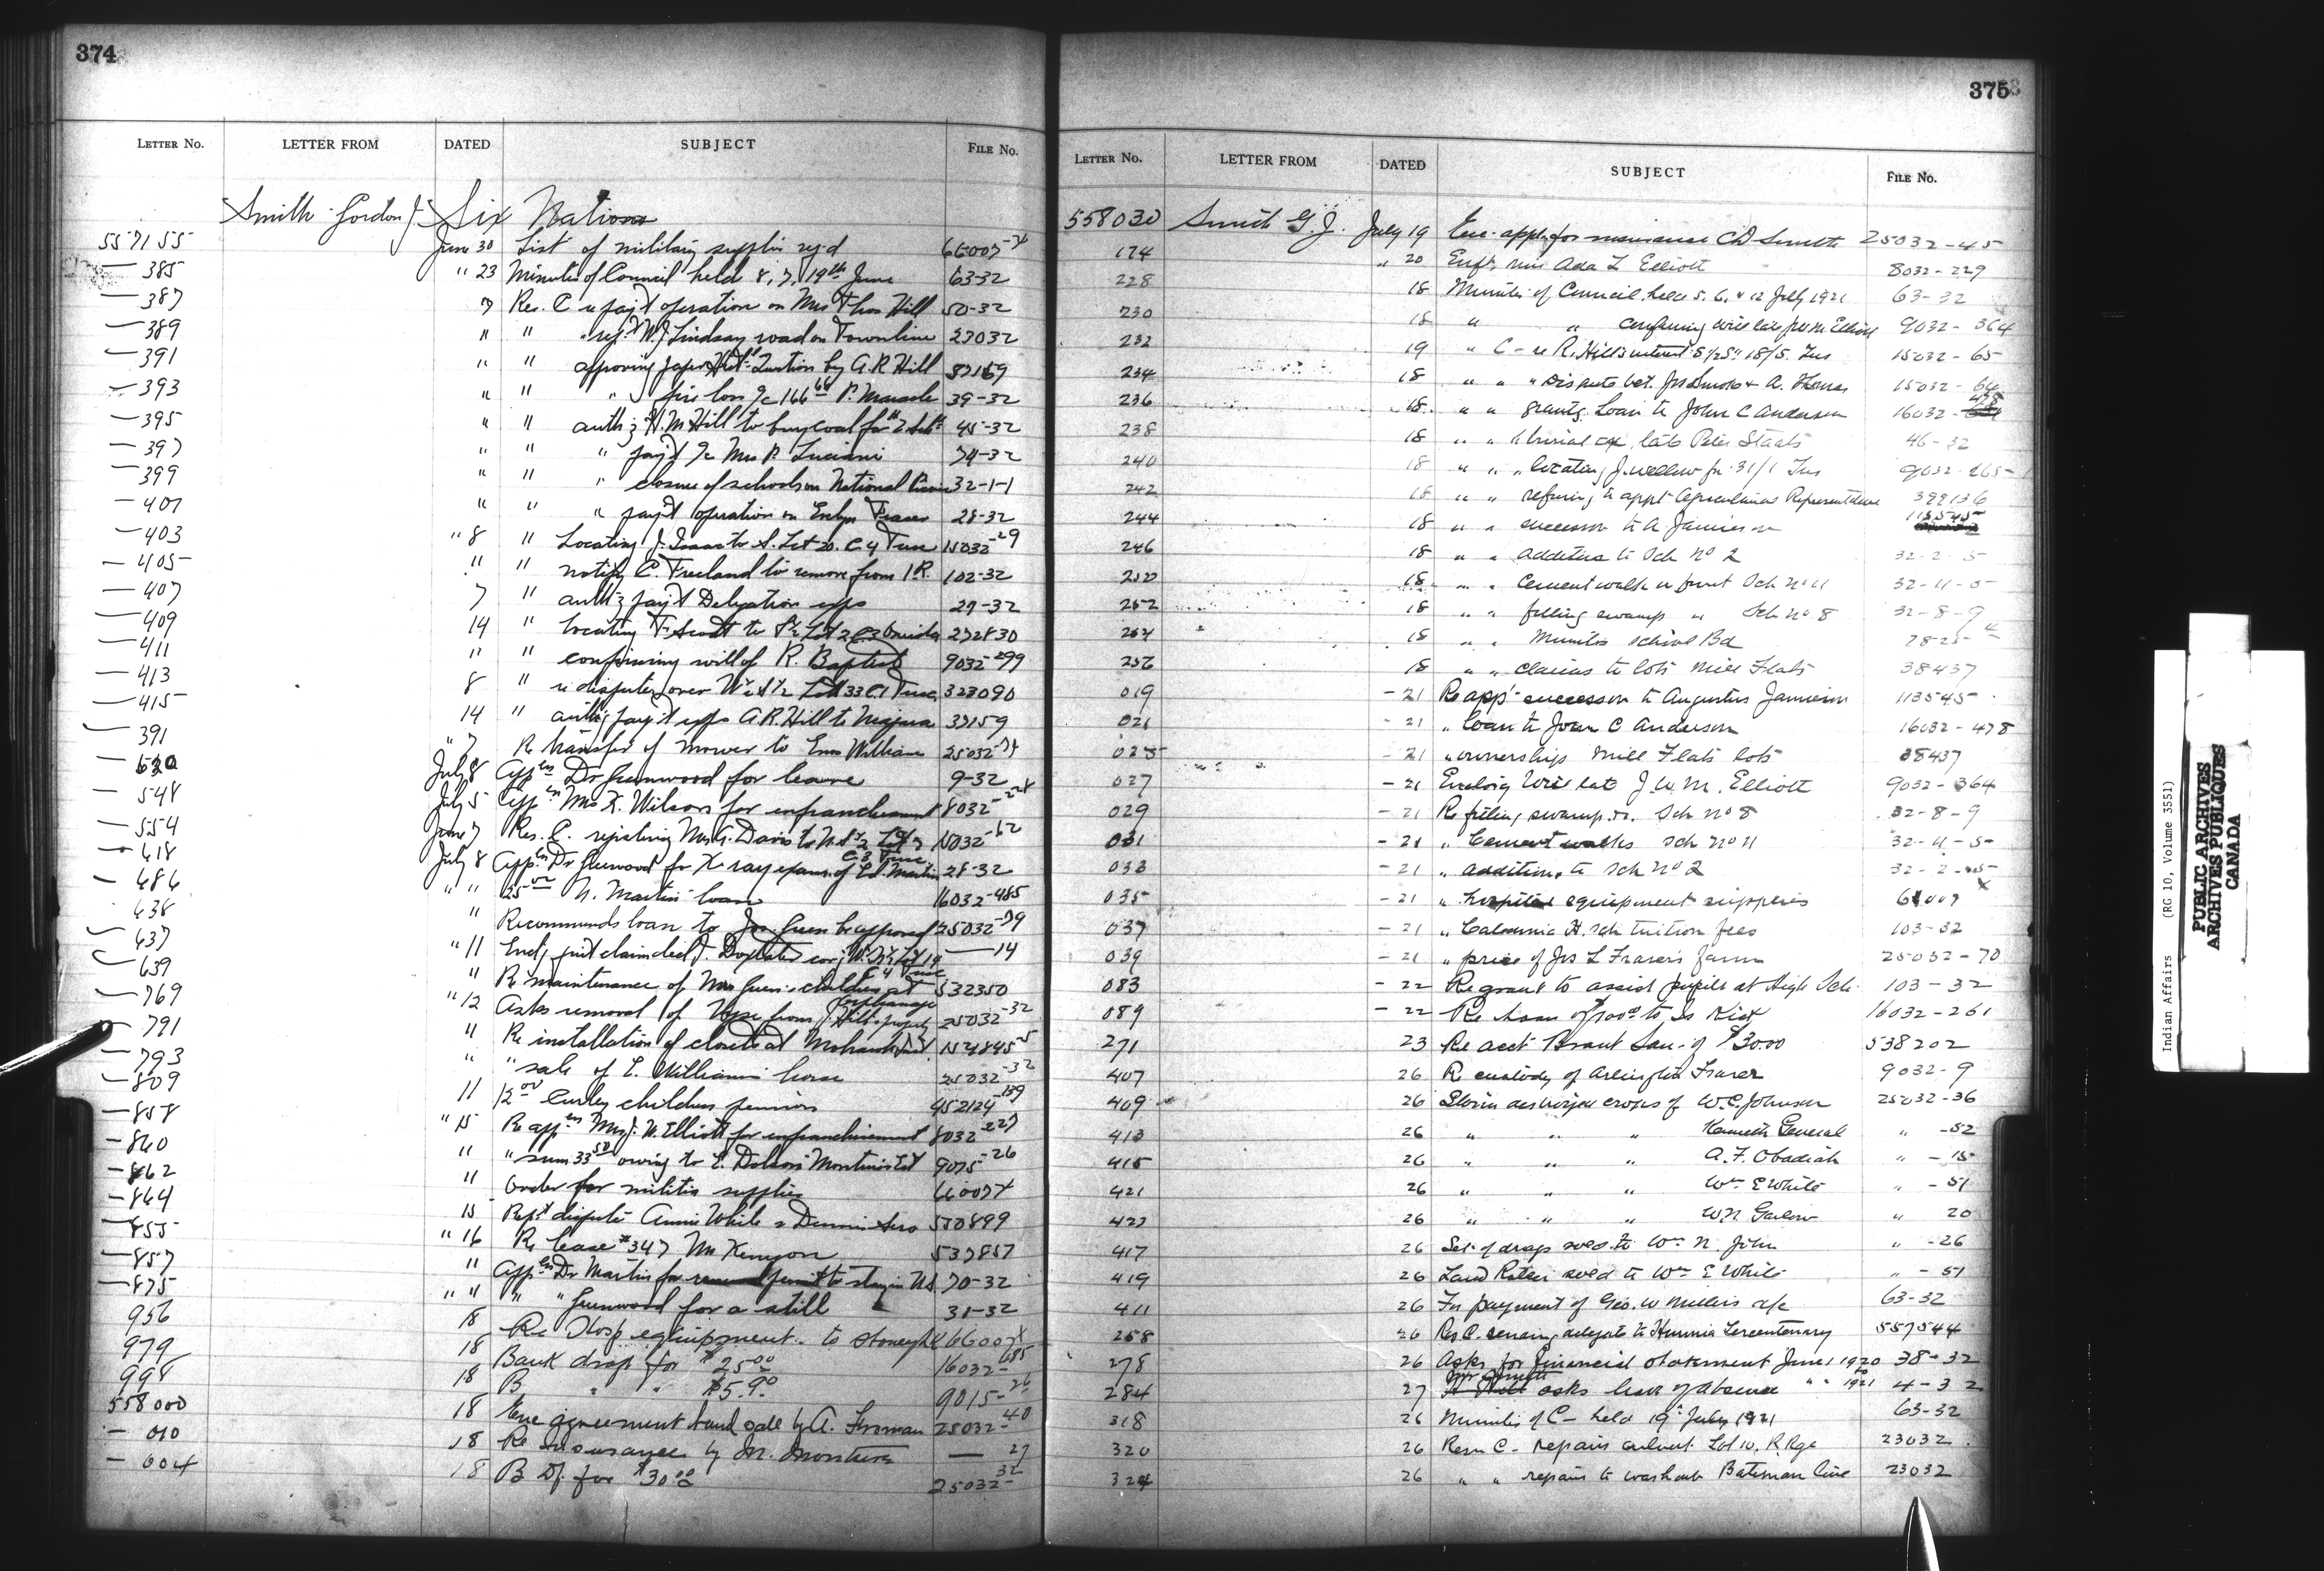 374
LETTER NO. LETTER FROM DATED SUBJECT FILE No.
Smith Gordon J. Six Nations
557155 June 30 List of military supplies req'd 66007-4
— 385 " 23 Minutes of Council held 8, 7, 19th June 63-32
— 387 7 Res. C re pay't operation on Mrs Thos Hill 50-32
— 389 " " W. J. Lindsay road on Townline 23032
— 391 " " approving by A. R. Hill
— 393 " " " fire loss P. Maracle 39-32
— 395 " " auth'g H. M. Hill to buy coal for 45-32
— 397 " " " pay't Mrs P. Luciani 74-32
— 399 " " " closure of schools on National 32-1-1
— 401 " " " pay't operation on Evelyn Fraser 28-32
— 403 " 8 " Locating J. Isaac to S. Lot 20. C 4 Tusc 15032-29
— 405 " " notify C. Freeland to remove from I.R. 102-32
— 407 7 " auth'g pay't Delegation exps 29-32
— 409 14 " locating F. Scott to Lot 2 C 3 Oneida 272830
— 411 " " confirming will of R. Baptiste 9032-299
— 413 8 " re dispute over Lot 33 C1 Tusc 323090
— 415 14 " auth'g pay't exps A. R. Hill to Niagara 37159
— 391 " 7 Re transfer of mower to Enos William 25032-74
— 520 July 8 App'en Dr Greenwood for leave 9-32
— 548 July 5 App'en Mrs F. Wilson for enfranchisement 8032-228
— 554 June 7 Res. C. Mrs G. Davis to Lot 2 C 3 Tusc 15032-62
— 618 July 8 App'en Dr Greenwood for X ray exam. of Ed. Martin 28-32
— 486 " " 25 00 N. Martin loan 16032-485
— 638 " Recommends loan to Jos. Green be approved 25032-79
— 637 " 11 Encl'g quit claim deed J. Lot 19 C 4 Tusc — 14
— 639 " Re maintenance of Mrs Green's children at orphanage 532350
— 769 " 12 Asks removal of from J. Hill's property 25032-32
— 791 " Re installation of closets at Mohawk Inst. 154845-5
— 793 " " sale of E. William's horse 25032-32
— 809 11 12 00 Curley children pension 452124-139
— 858 " 15 Re app'en Mrs J. W. Elliott for enfranchisement 8032-227
— 860 " " sum 33 50 owing to E. Dolson 9015-26
— 862 " Order for militia supplies 66007-4
— 864 15 Rep't dispute Annie White & Dennis Sero 550899
— 855 " 16 Re lease #347 Mr Kenyon 537857
— 857 " App'en Dr Martin for permit to stay in U.S. 70-32
— 875 " " " " Greenwood for a still 31-32
956 18 Re Hosp equipment to 66007-4
979 18 Bank draft for $25.00 16032-485
998 18 B " " $5.90 9015-26
558000 18 Enc agreement land sale by A. Froman 25032-40
— 010 18 Re Insurance by M. Monture — 27
— 004 18 B Df. for $30.00 25032-32
375
LETTER No. LETTER FROM DATED SUBJECT FILE No.
558030 Smith G. J. July 19 Enc. appln for C D Smith 25032-45
174 " 20 Enft. Miss Ada L Elliott 8032-229
228 18 Minutes of Council held 5. 6. & 12 July 1921 63-32
230 18 " " confirming will late Jno M Elliott 9032-364
232 19 " C - re R. Hill's interest 18/5. Tus 15032-65
234 18 " " " Dispute bet. & A. Thomas 15032-64
236 18 " " grantg. Loan to John C Anderson 16032-478
238 18 " " " burial ex. late Peter Staats 46-32
240 18 " " " locating 31/1 Tus 9032-265-1
242 18 " " refusing to appt Agricultural Representative 399136
244 18 " " successor to A Jamieson 113545
246 18 " " addition to Sch No 2 32-2-5
250 18 " " Cement walk in front Sch No 11 32-11-5
252 18 " " filling swamp " Sch No 8 32-8-9
254 18 " " Minutes School Bd 28-25-4
256 18 " " claims to lots Mill Flats 38437
019 - 21 Re app't successor to Augustus Jamieson 113545
021 - 21 " loan to John C Anderson 16032-478
025 - 21 " ownerships Mill Flats lots 38437
027 - 21 Enclosing Will late J. W. M. Elliott 9032-364
029 - 21 Re filling swamp Sch No 8 32-8-9
031 - 21 " Cement walks Sch No 11 32-11-5
033 - 21 " addition to Sch No 2 32-2-5
035 - 21 " hospital equipment supplies
037 - 21 " Caledonia H. Sch tuition fees 103-32
039 - 21 " price of Jos L Fraser's farm 25032-70
083 - 22 Re grant to assist pupils at High Sch. 103-32
089 - 22 Re loan of to Kick 16032-261
271 23 Re acct Brant San. of $30.00 538202
407 26 Re custody of Arlington Fraser 9032-9
409 26 Storm destroyed crops of W. C. Johnson 25032-36
413 26 " " " Kenneth General " -52
415 26 " " " A. F. Obadiah " -15
421 26 " " " Wm E White " -51
423 26 " " " W N Garlow " 20
417 26 Set of drags sold to Wm N. John " -26
419 26 Land Roller sold to Wm E White " -51
411 26 For payment of Geo. W Miller's a/c 63-32
258 26 Res C. sending delegate to Huronia Tercentenary 557544
278 26 Asks for financial statement June 1 1920 " " 1921 38-32
284 27 Mr Smith asks leave of Absence 4-32
318 26 Minutes of C - held 19th July 1921 63-32
320 26 Resn C - repairs culvert Lot 10. R. Rge 23032
324 26 " " repairs to washout Bateman line 23032
Indian Affairs (RG 10, Volume 3551)
PUBLIC ARCHIVES
ARCHIVES PUBLIQUES
CANADA